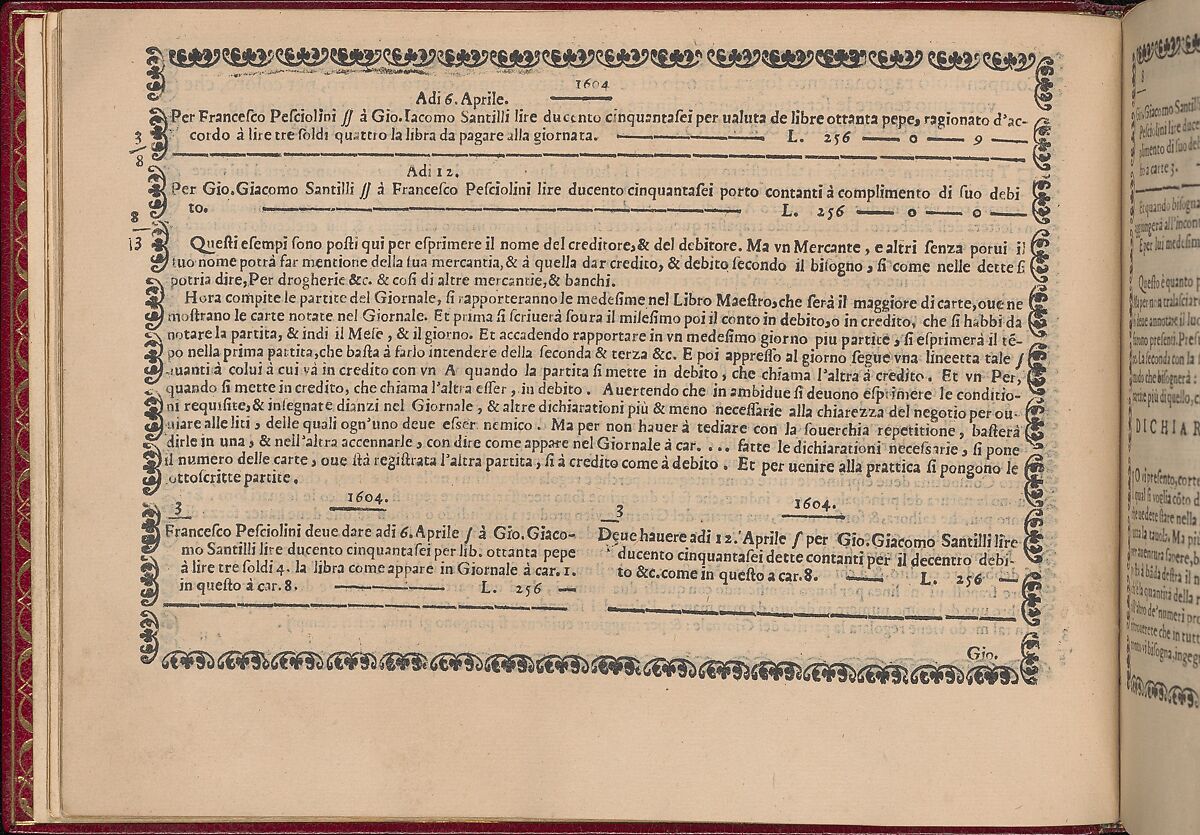 1604
Adi 6. Aprile.
Per Francesco Pesciolini ∫∫ à Gio. Iacomo Santilli lire ducento cinquantasei per ualuta de libre ottanta pepe, ragionato d'ac-
3/8
cordo à lire tre soldi quattro la libra da pagare alla giornata. L. 256 — 0 — 9 —
Adi 12.
Per Gio. Giacomo Santilli ∫∫ à Francesco Pesciolini lire ducento cinquantasei porto contanti à complimento di suo debi
8/13
to. L. 256 — 0 — 0 —
Questi esempi sono posti qui per esprimere il nome del creditore, & del debitore. Ma vn Mercante, e altri senza porui il
suo nome potrà far mentione della sua mercantia, & à quella dar credito, & debito secondo il bisogno, si come nelle dette si
potria dire, Per drogherie &c. & cosi di altre mercantie, & banchi.
Hora compite le partite del Giornale, si rapporteranno le medesime nel Libro Maestro, che serà il maggiore di carte, oue ne
mostrano le carte notate nel Giornale. Et prima si scriuerà soura il milesimo poi il conto in debito, o in credito, che si habbi da
notare la partita, & indi il Mese, & il giorno. Et accadendo rapportare in vn medesimo giorno piu partite, si esprimerà il tē-
po nella prima partita, che basta à farlo intendere della seconda & terza &c. E poi appresso al giorno segue vna lineetta tale ∫
uanti à colui à cui và in credito con vn A quando la partita si mette in debito, che chiama l'altra à credito. Et vn Per,
quando si mette in credito, che chiama l'altra esser, in debito. Auertendo che in ambidue si deuono esprimere le conditio-
ni requisite, & insegnate dianzi nel Giornale, & altre dichiarationi più & meno necessarie alla chiarezza del negotio per ou-
uiare alle liti, delle quali ogn'uno deue esser nemico. Ma per non hauer à tediare con la souerchia repetitione, basterà
dirle in una, & nell'altra accennarle, con dire come appare nel Giornale à car. . . . fatte le dichiarationi necessarie, si pone
il numero delle carte, oue stà registrata l'altra partita, si à credito come à debito. Et per uenire alla prattica si pongono le
ottoscritte partite.
3
1604.
Francesco Pesciolini deue dare adi 6. Aprile ∫ à Gio. Giaco-
mo Santilli lire ducento cinquantasei per lib. ottanta pepe
à lire tre soldi 4. la libra come appare in Giornale à car. 1.
in questo à car. 8. L. 256 —
3
1604.
Deue hauere adi 12. Aprile ∫ per Gio. Giacomo Santilli lire
ducento cinquantasei dette contanti per il decentro debi-
to &c. come in questo a car. 8. L. 256 —
Gio.
8
Gio. Giacomo Santill
Pesciolini lire duce
plimento di suo deb
to a carte 3.
Et quando bisogna
aggiungerà all'incon
E per lui medesim
Questo è quanto p
DICHIAR